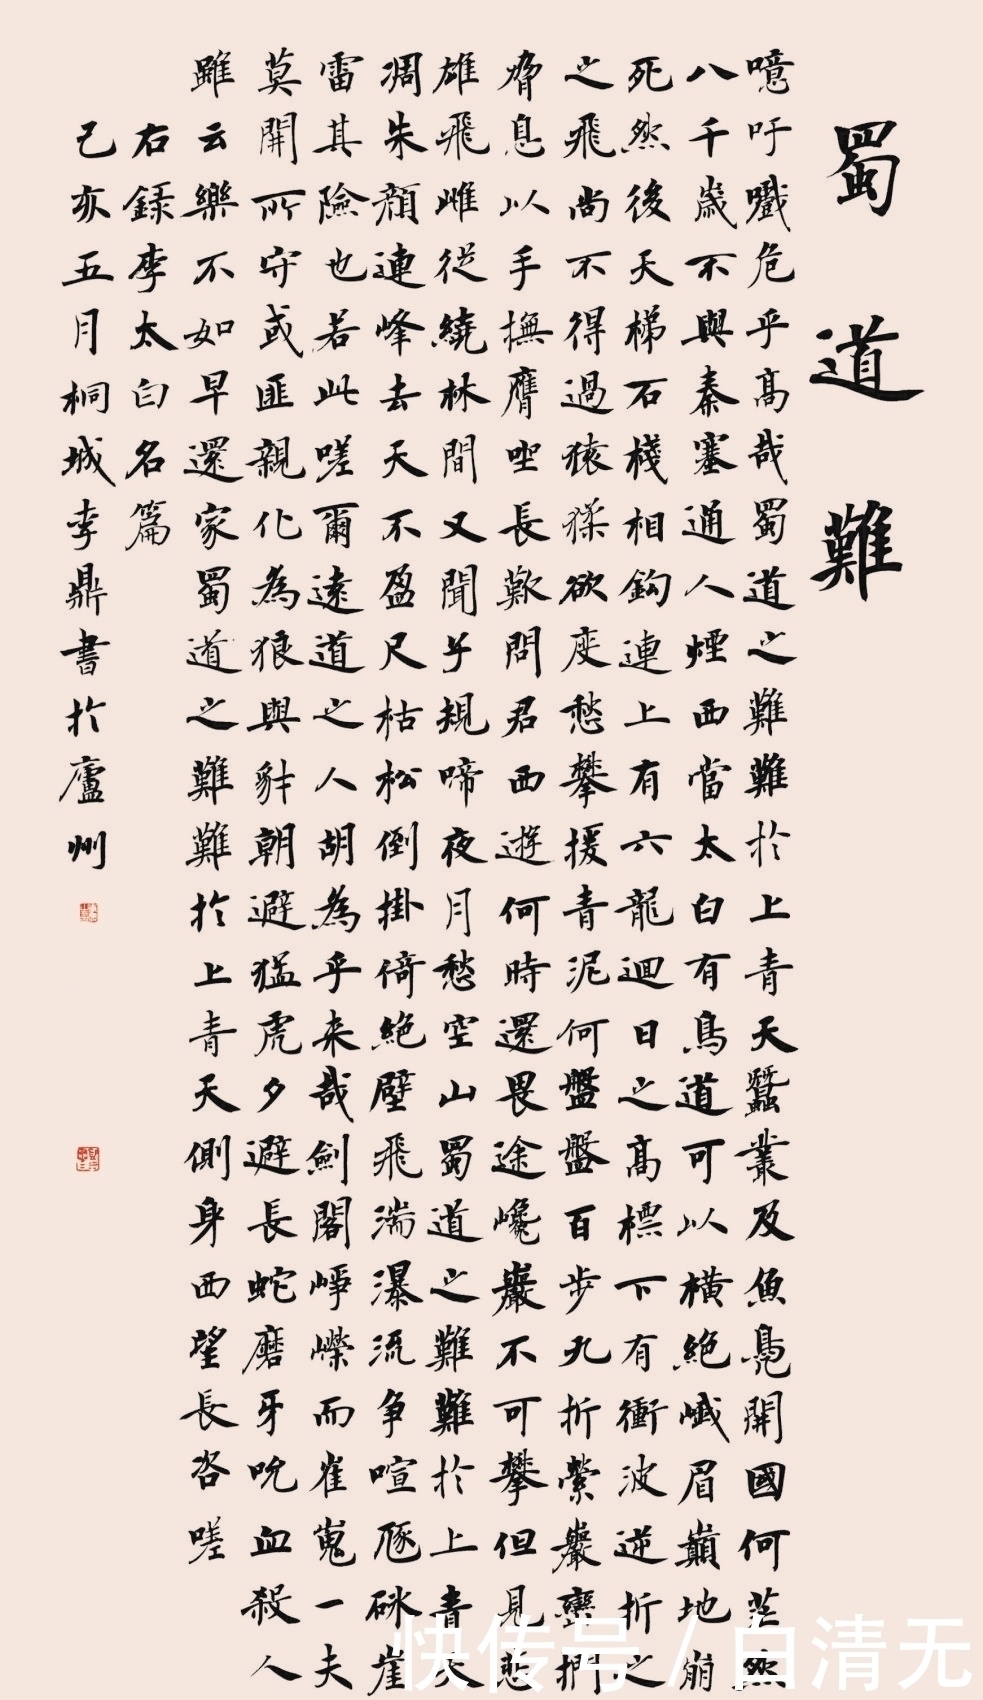 蜀道難
噫吁嚱危乎高哉蜀道之難難於上青天蠶叢及魚鳧開國何茫然
八千歲不與秦塞通人煙西當太白有鳥道可以橫絕峨眉巔地崩
死然後天梯石棧相鉤連上有六龍迴日之高標下有衝波逆折之
之飛尚不得過猿猱欲度愁攀援青泥何盤盤百步九折縈巖巒捫
脅息以手撫膺坐長歎問君西遊何時還畏途巉巖不可攀但見悲
雄飛雌從繞林間又聞子規啼夜月愁空山蜀道之難難於上青天
凋朱顏連峰去天不盈尺枯松倒掛倚絕壁飛湍瀑流爭喧豗砯崖
雷其險也若此嗟爾遠道之人胡為乎来哉劍閣崢嶸而崔嵬一夫
莫開所守或匪親化為狼與豺朝避猛虎夕避長蛇磨牙吮血殺人
雖云樂不如早還家蜀道之難難於上青天側身西望長咨嗟
右錄李太白名篇
己亥五月桐城李鼎書於廬州
快传号 / 白清无